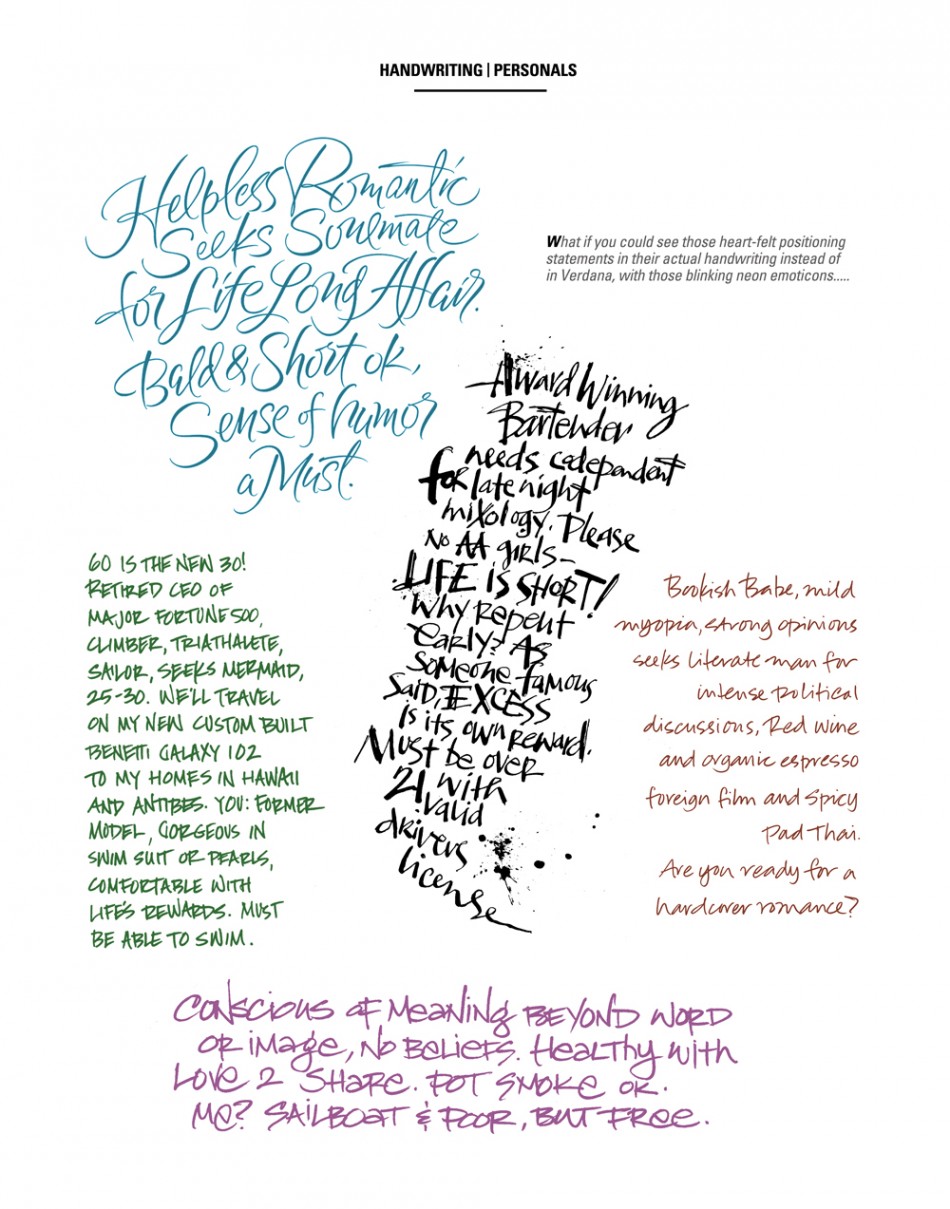 HANDWRITING | PERSONALS
Helpless Romantic
Seeks Soulmate
for Life Long Affair.
Bald & Short ok,
Sense of humor
a Must.
What if you could see those heart-felt positioning
statements in their actual handwriting instead of
in Verdana, with those blinking neon emoticons.....
Award Winning
Bartender
needs codependent
for late night
mixology. Please
No AA girls–
LIFE is SHORT!
Why repent
early? As
someone famous
said, EXCESS
is its own reward.
Must be over
21 with
valid
drivers
license
60 IS THE NEW 30!
RETIRED CEO OF
MAJOR FORTUNE 500,
CLIMBER, TRIATHALETE,
SAILOR, SEEKS MERMAID,
25-30. WE'LL TRAVEL
ON MY NEW CUSTOM BUILT
BENETTI GALAXY 102
TO MY HOMES IN HAWAII
AND ANTIBES. YOU: FORMER
MODEL, GORGEOUS IN
SWIM SUIT OR PEARLS,
COMFORTABLE WITH
LIFE'S REWARDS. MUST
BE ABLE TO SWIM.
Bookish Babe, mild
myopia, strong opinions
seeks literate man for
intense political
discussions, Red wine
and organic espresso
foreign film and Spicy
Pad Thai.
Are you ready for a
hardcover romance?
Conscious of Meaning BEYOND WORD
OR image, No Beliefs. Healthy with
Love 2 SHARE. POT SMOKE OK.
Me? SAILBOAT & POOR, BUT FREE.